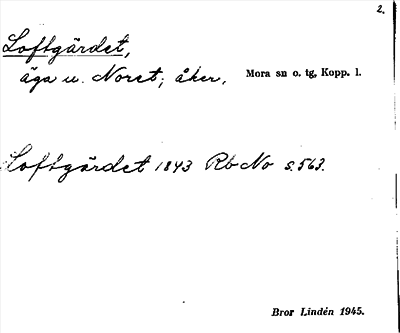 2.
Loftgärdet,
äga u. Noret; åker, Mora sn o. tg, Kopp. l.
Loftgärdet 1843 Rb No s. 563.
Bror Lindén 1945.